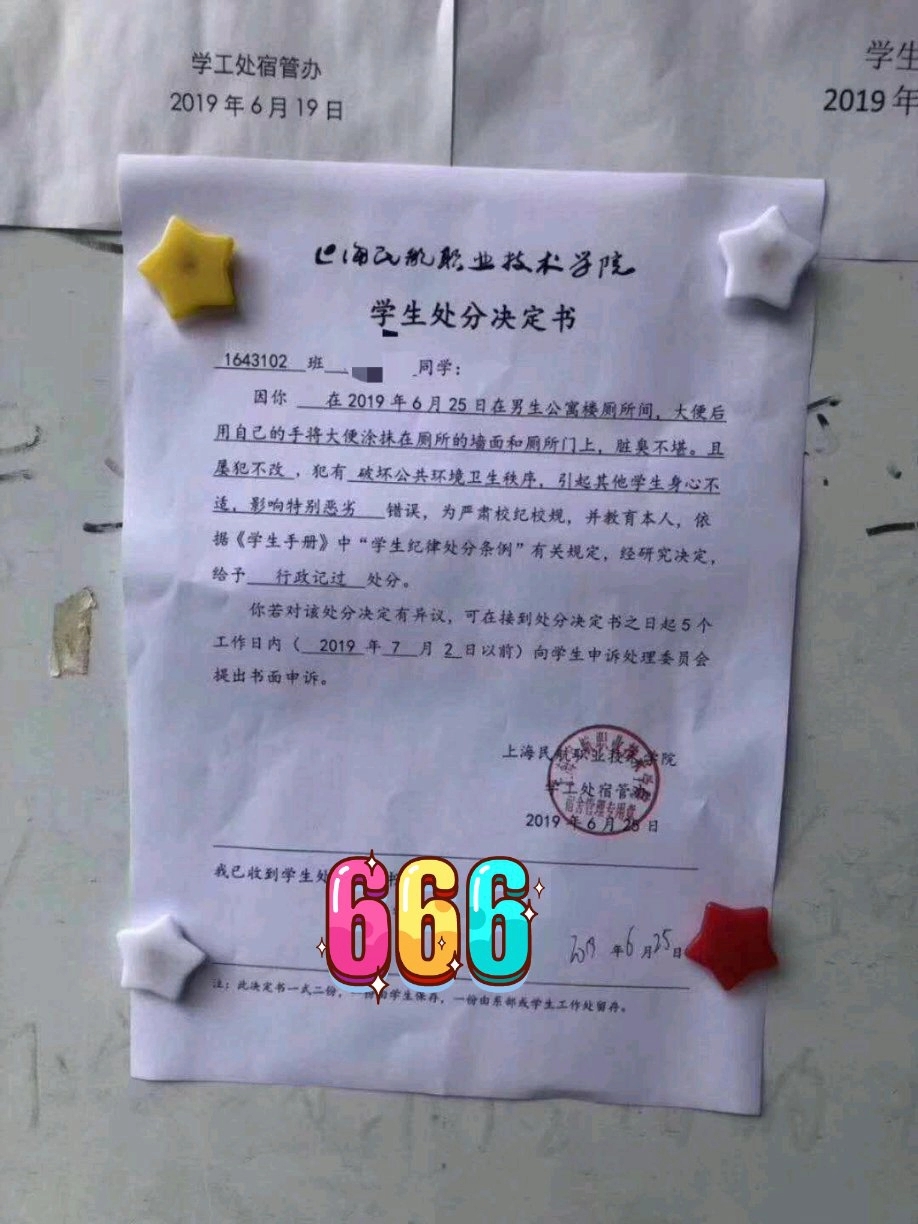 学工处宿管办
2019年6月19日
学生
2019年
上海民航职业技术学院
学生处分决定书
1643102 班 同学：
因你 在2019年6月25日在男生公寓楼厕所间，大便后
用自己的手将大便涂抹在厕所的墙面和厕所门上，脏臭不堪。且
屡犯不改，犯有 破坏公共环境卫生秩序，引起其他学生身心不
适，影响特别恶劣 错误，为严肃校纪校规，并教育本人，依
据《学生手册》中“学生纪律处分条例”有关规定，经研究决定，
给予 行政记过 处分。
你若对该处分决定有异议，可在接到处分决定书之日起5个
工作日内（ 2019 年 7 月 2 日以前）向学生申诉处理委员会
提出书面申诉。
上海民航职业技术学院
学工处宿管办
2019年6月25日
宿舍管理专用章
我已收到学生处 书
666
2019 年 6 月 25 日
注：此决定书一式二份，一份由学生保存，一份由系部或学生工作处留存。